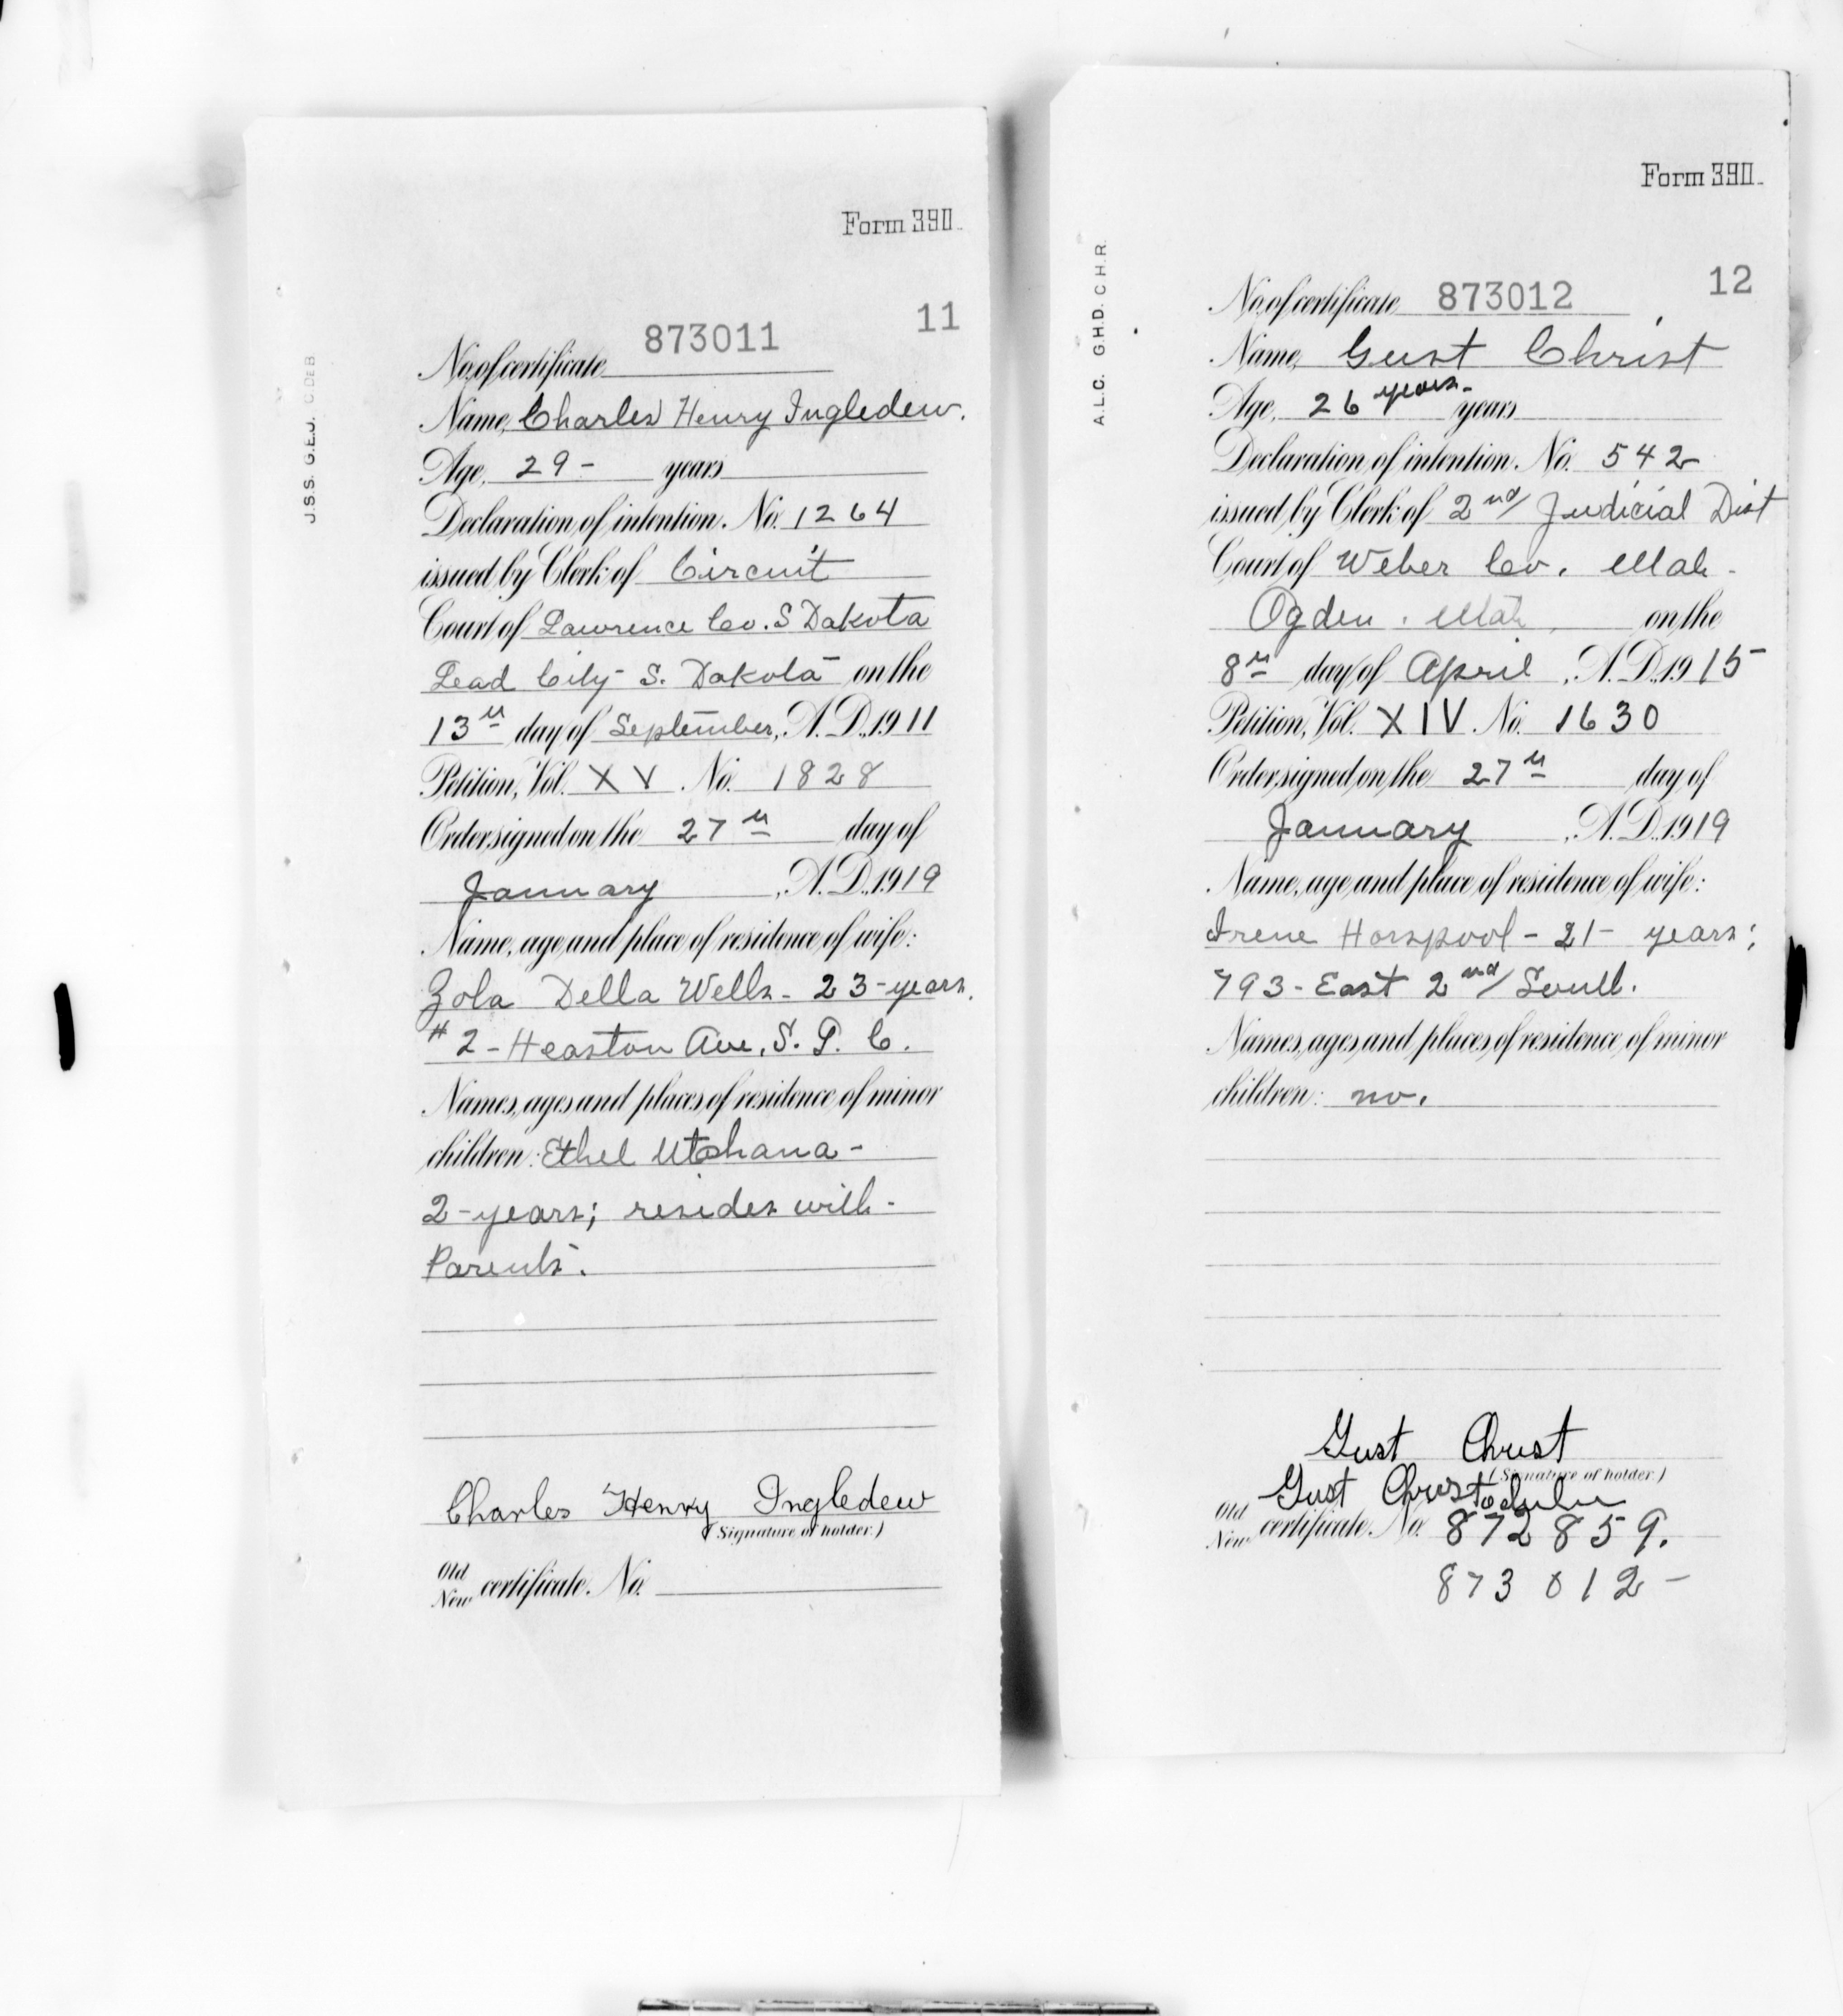 Form 390.
11
J.S.S. G.E.J. C.D&B
873011
No. of certificate
Name, Charles Henry Ingledew.
Age, 29- years
Declaration of intention. No. 1264
issued by Clerk of Circuit
Court of Lawrence Co. S Dakota
Lead City S. Dakota on the
13th day of September, A.D. 1911
Petition, Vol. XV No. 1828
Order signed on the 27th day of
January, A.D. 1919
Name, age and place of residence of wife:
Zola Della Wells - 23-years.
#2 - Heaston Ave, S. L. C.
Names, ages and places of residence of minor
children: Ethel Utahana -
2-years; resides with -
Parents.
Charles Henry Ingledew
(Signature of holder.)
Old
New certificate. No.
Form 390.
12
A.L.C. G.H.D. C.H.R.
No. of certificate 873012
Name, Gust Christ
Age, 26 years. years
Declaration of intention. No. 542
issued by Clerk of 2nd Judicial Dist
Court of Weber Co. Utah -
Ogden. Utah, on the
8th day of April, A.D. 1915
Petition, Vol. XIV. No. 1630
Order signed on the 27th day of
January, A.D. 1919
Name, age and place of residence of wife:
Irene Horspool - 21- years;
793 - East 2nd South.
Names, ages and places of residence of minor
children: no.
Gust Christ
(Signature of holder.)
Gust
Old
New certificate. No. 872859.
873012 -